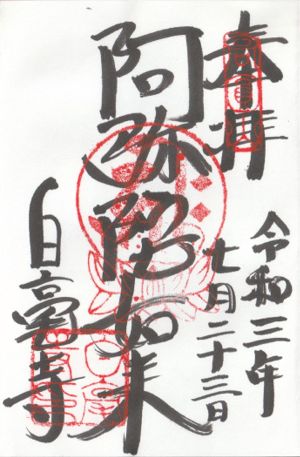 奉拝
令和三年
七月二十三日
阿弥陀如来
白毫寺